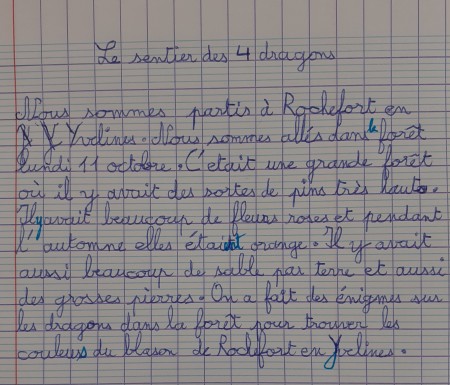 Le sentier des 4 dragons
Nous sommes partis à Rochefort en
Yvelines. Nous sommes allés dans la forêt
lundi 11 octobre. C'etait une grande forêt
où il y avait des sortes de pins très hauts.
Il y avait beaucoup de fleurs roses et pendant
l'automne elles étaient orange. Il y avait
aussi beaucoup de sable par terre et aussi
des grosses pierres. On a fait des énigmes sur
les dragons dans la forêt pour trouver les
couleurs du blason de Rochefort en Yvelines.